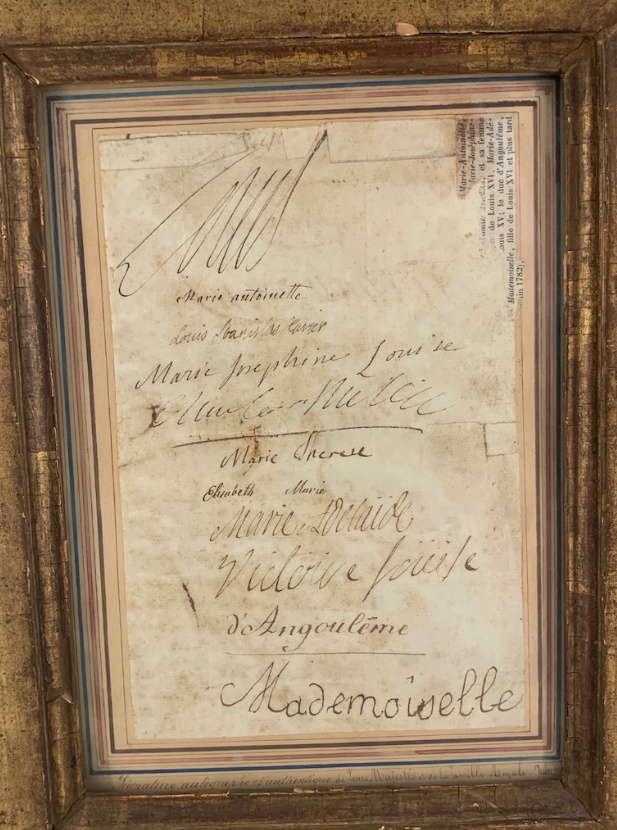 Louis
Marie antoinette
Louis Stanislas Xavier
Marie Josephine Louise
Marie Therese
Elisabeth Marie
Marie Adelaide
Victoire Louise
d'Angoulême
Mademoiselle
Marie-Antoinette,
Marie-Joséphine-
et sa femme
de Louis XVI, Marie-Adé-
ouis XV; le duc d'Angoulême,
Mademoiselle, fille de Louis XVI et plus tard
in 1782]
Signature autographe et authentique de Leurs Majestés et de la famille Royale